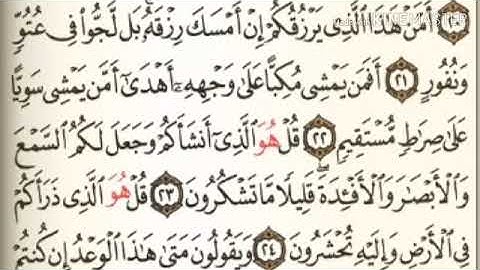 KINEMASTER
٢٠ أَمَّنْ هَٰذَا ٱلَّذِى يَرْزُقُكُمْ إِنْ أَمْسَكَ رِزْقَهُۥ بَل لَّجُّوا۟ فِى عُتُوٍّ
وَنُفُورٍ ٢١ أَفَمَن يَمْشِى مُكِبًّا عَلَىٰ وَجْهِهِۦٓ أَهْدَىٰٓ أَمَّن يَمْشِى سَوِيًّا
عَلَىٰ صِرَٰطٍ مُّسْتَقِيمٍ ٢٢ قُلْ هُوَ ٱلَّذِىٓ أَنشَأَكُمْ وَجَعَلَ لَكُمُ ٱلسَّمْعَ
وَٱلْأَبْصَٰرَ وَٱلْأَفْـِٔدَةَ ۖ قَلِيلًا مَّا تَشْكُرُونَ ٢٣ قُلْ هُوَ ٱلَّذِى ذَرَأَكُمْ
فِى ٱلْأَرْضِ وَإِلَيْهِ تُحْشَرُونَ ٢٤ وَيَقُولُونَ مَتَىٰ هَٰذَا ٱلْوَعْدُ إِن كُنتُمْ